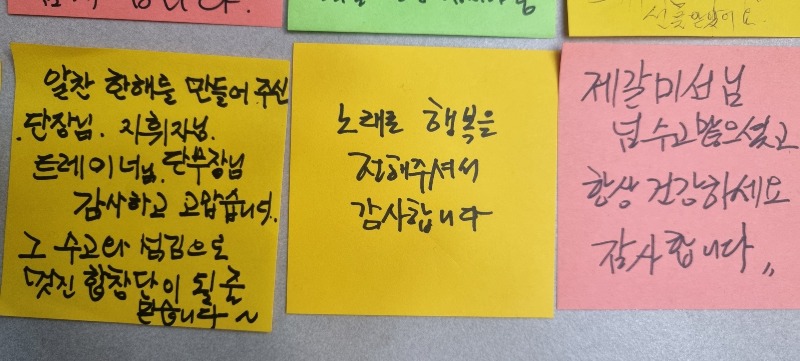 합니다.
선물 같았어요.
알찬 한해를 만들어 주신
단장님. 지휘자님.
트레이너님. 단무장님
감사하고 고맙습니다.
그 수고와 섬김으로
멋진 합창단이 될 줄
믿습니다 ~
노래로 행복을
전해주셔서
감사합니다
제갈미선님
넘 수고많으셨고
항상 건강하세요
감사합니다 〃